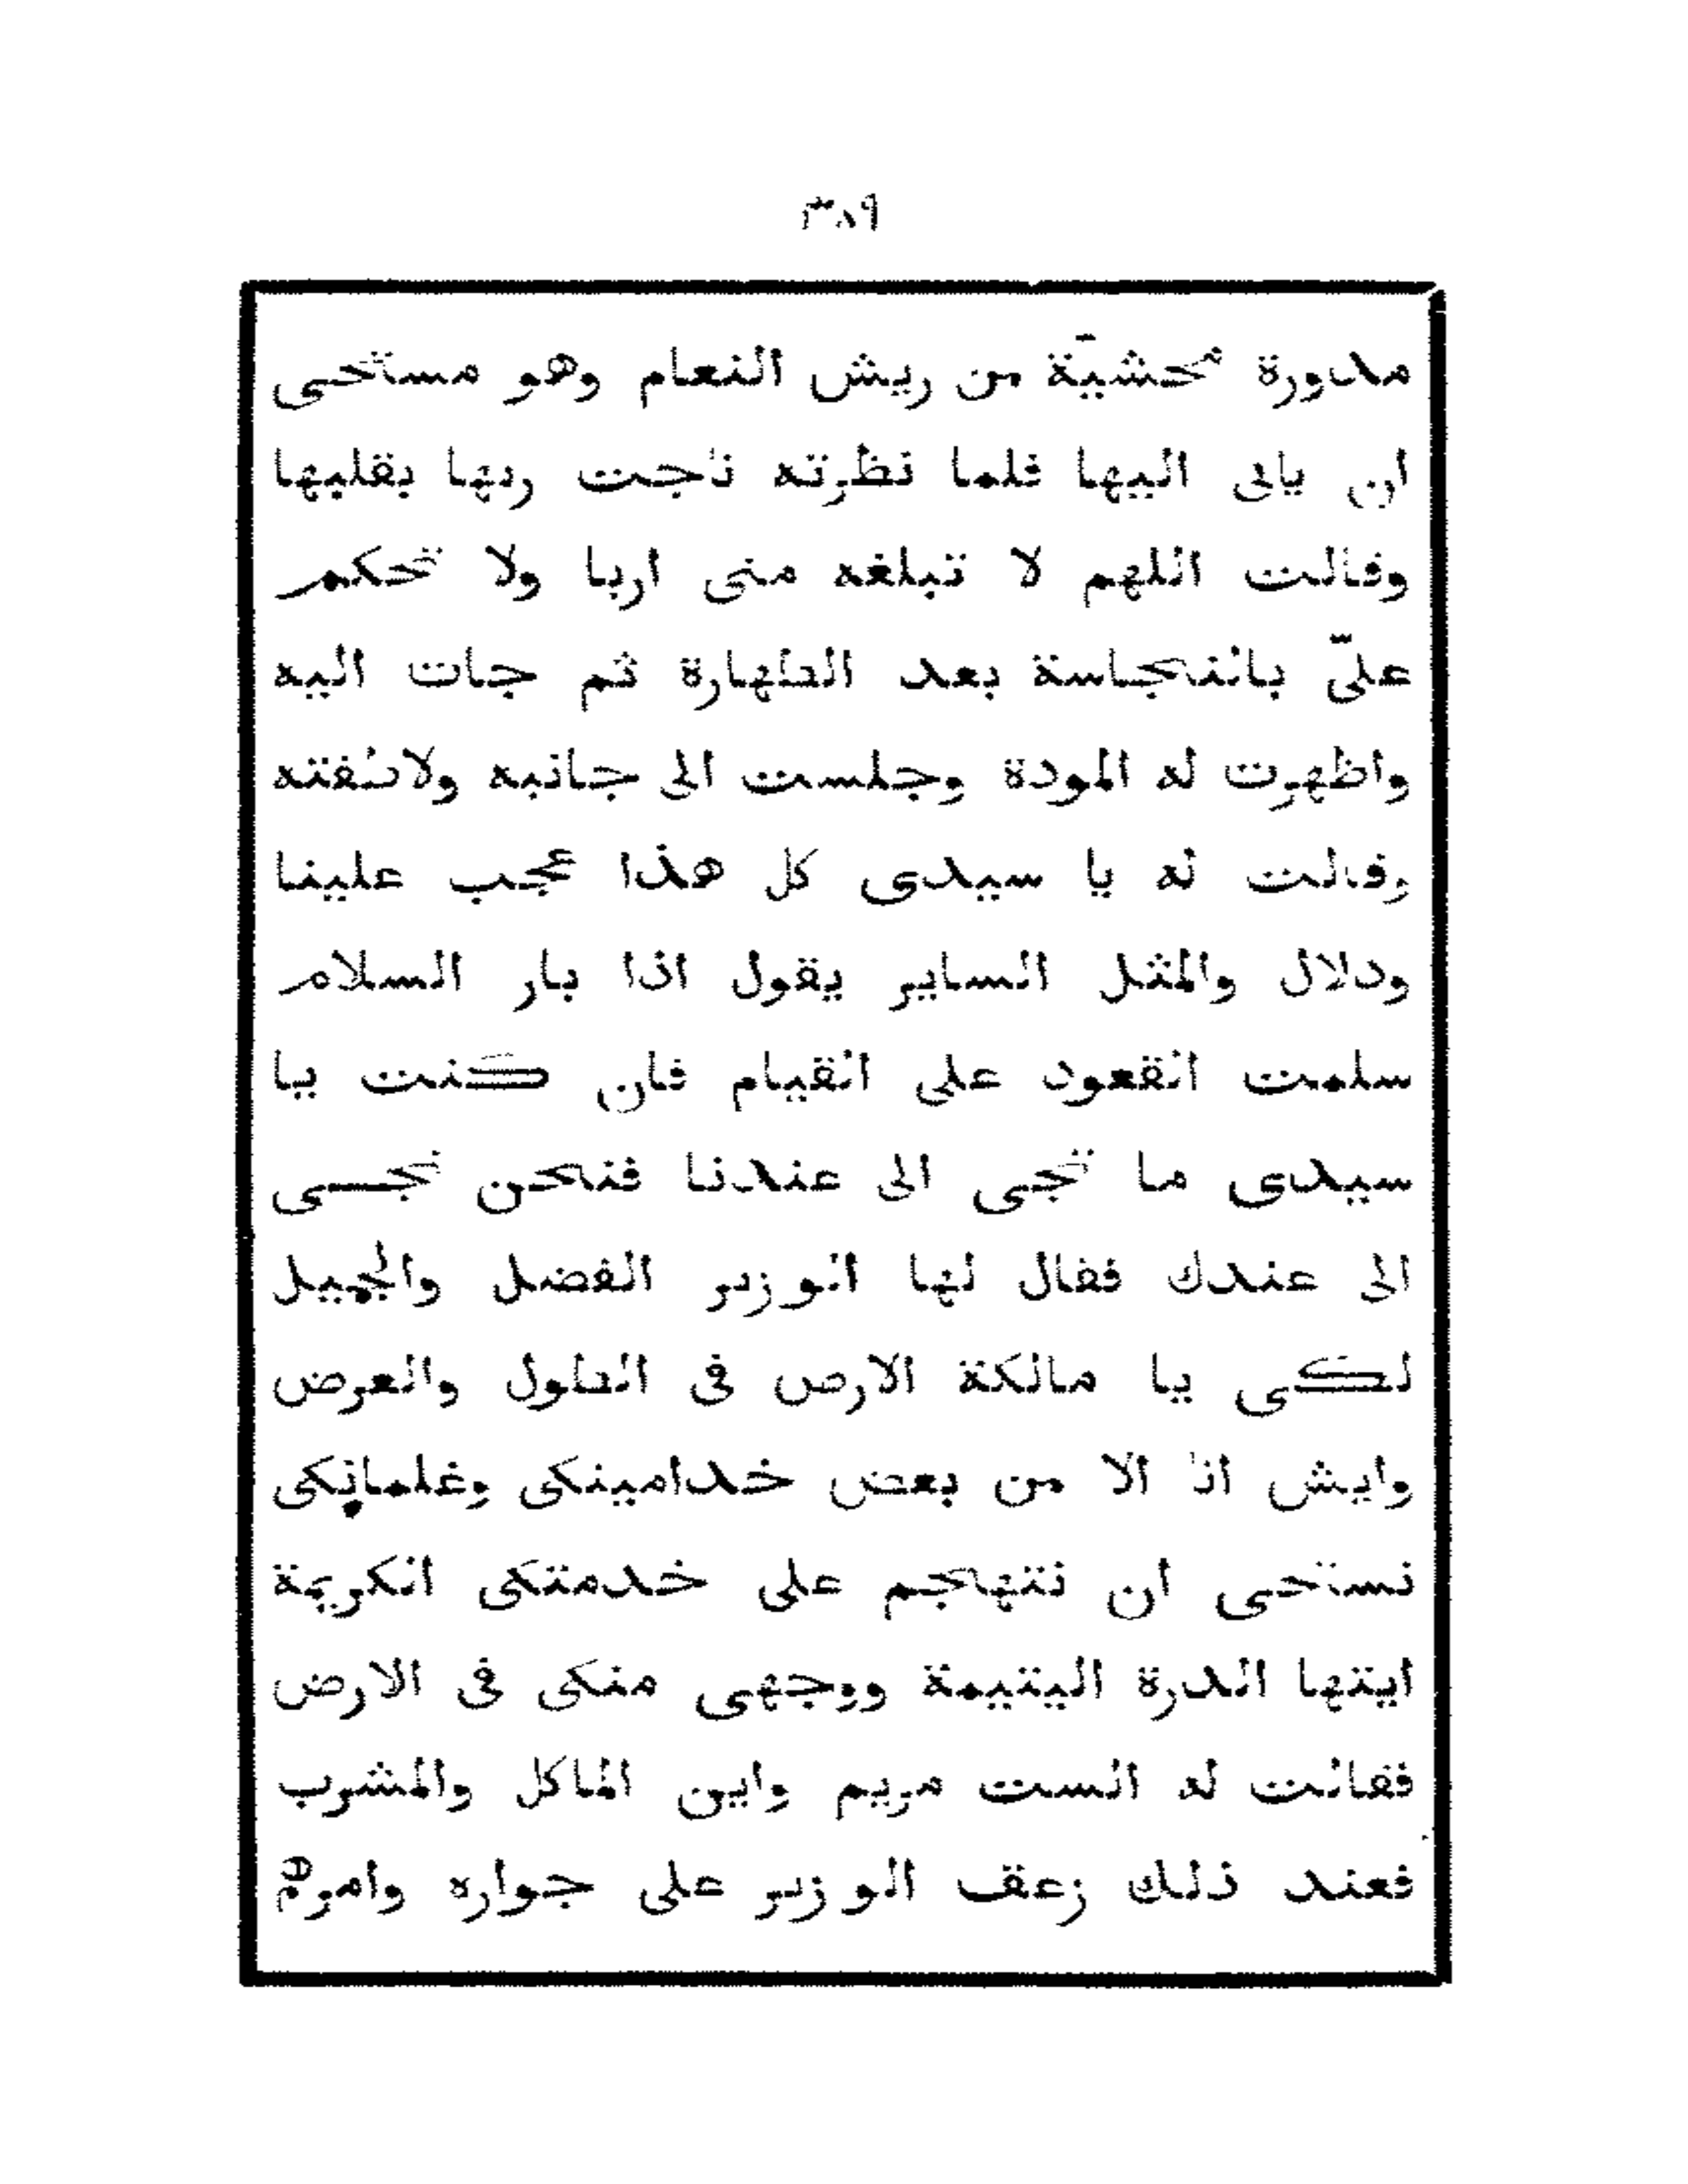 ٣٨٩
مدورة محشيّة من ريش النعام وهو مستحى
ان ياتى اليها فلما نظرته ناجت ربها بقلبها
وقالت اللهم لا تبلغه منى اربا ولا تحكم
علىّ بالنجاسة بعد الطهارة ثم جات اليه
واظهرت له المودة وجلست الى جانبه ولاطفته
وقالت له يا سيدى كل هذا عجب علينا
ودلال والمثل الساير يقول اذا بار السلام
سلمت القعود على القيام فان كنت يا
سيدى ما تجى الى عندنا فنحن نجى
الى عندك فقال لها الوزير الفضل والجميل
لكى يا مالكة الارض فى الطول والعرض
وايش انا الا من بعض خدامينكى وغلمانكى
نستحى ان نتهجم على خدمتكى الكريمة
ايتها الدرة اليتيمة ووجهى منكى فى الارض
فقالت له الست مريم واين الماكل والمشرب
فعند ذلك زعق الوزير على جواره وامرهم